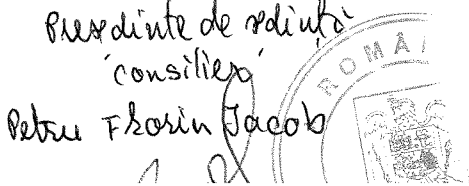 Presedinte de ședință
consilier
Petru Florin Jacob
ROMÂ